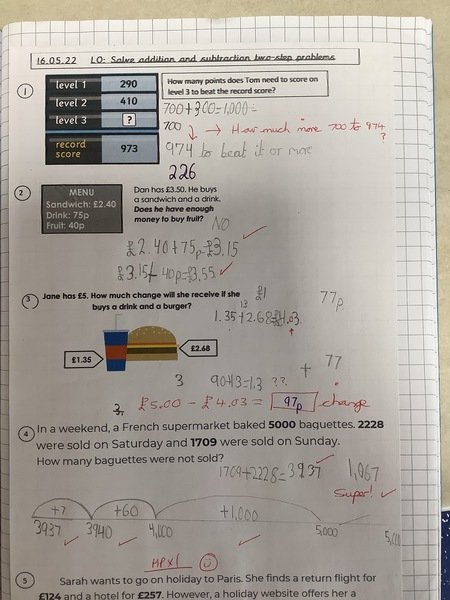 16.05.22 LO: Solve addition and subtraction two-step problems
1
level 1 290
level 2 410
level 3 ?
record score 973
How many points does Tom need to score on
level 3 to beat the record score?
700+300=1,000=
700 ↓ → How much more 700 to 974
?
974 to beat it or more
226
2
MENU
Sandwich: £2.40
Drink: 75p
Fruit: 40p
Dan has £3.50. He buys
a sandwich and a drink.
Does he have enough
money to buy fruit?
NO
£2.40+75p=£3.15
£3.15+40p=£3.55
3 Jane has £5. How much change will she receive if she
buys a drink and a burger?
£1
77p
13
1.35+2.68=£4.03
£1.35
£2.68
+ 77
3 90+13=1.3 ??
£5.00 - £4.03 = 97p change
4 In a weekend, a French supermarket baked 5000 baguettes. 2228
were sold on Saturday and 1709 were sold on Sunday.
How many baguettes were not sold?
1709+2228=3937 1,067
Super!
+7 +60 +1,000
3937 3940 4,000 5,000
HPx1
5 Sarah wants to go on holiday to Paris. She finds a return flight for
£124 and a hotel for £257. However, a holiday website offers her a